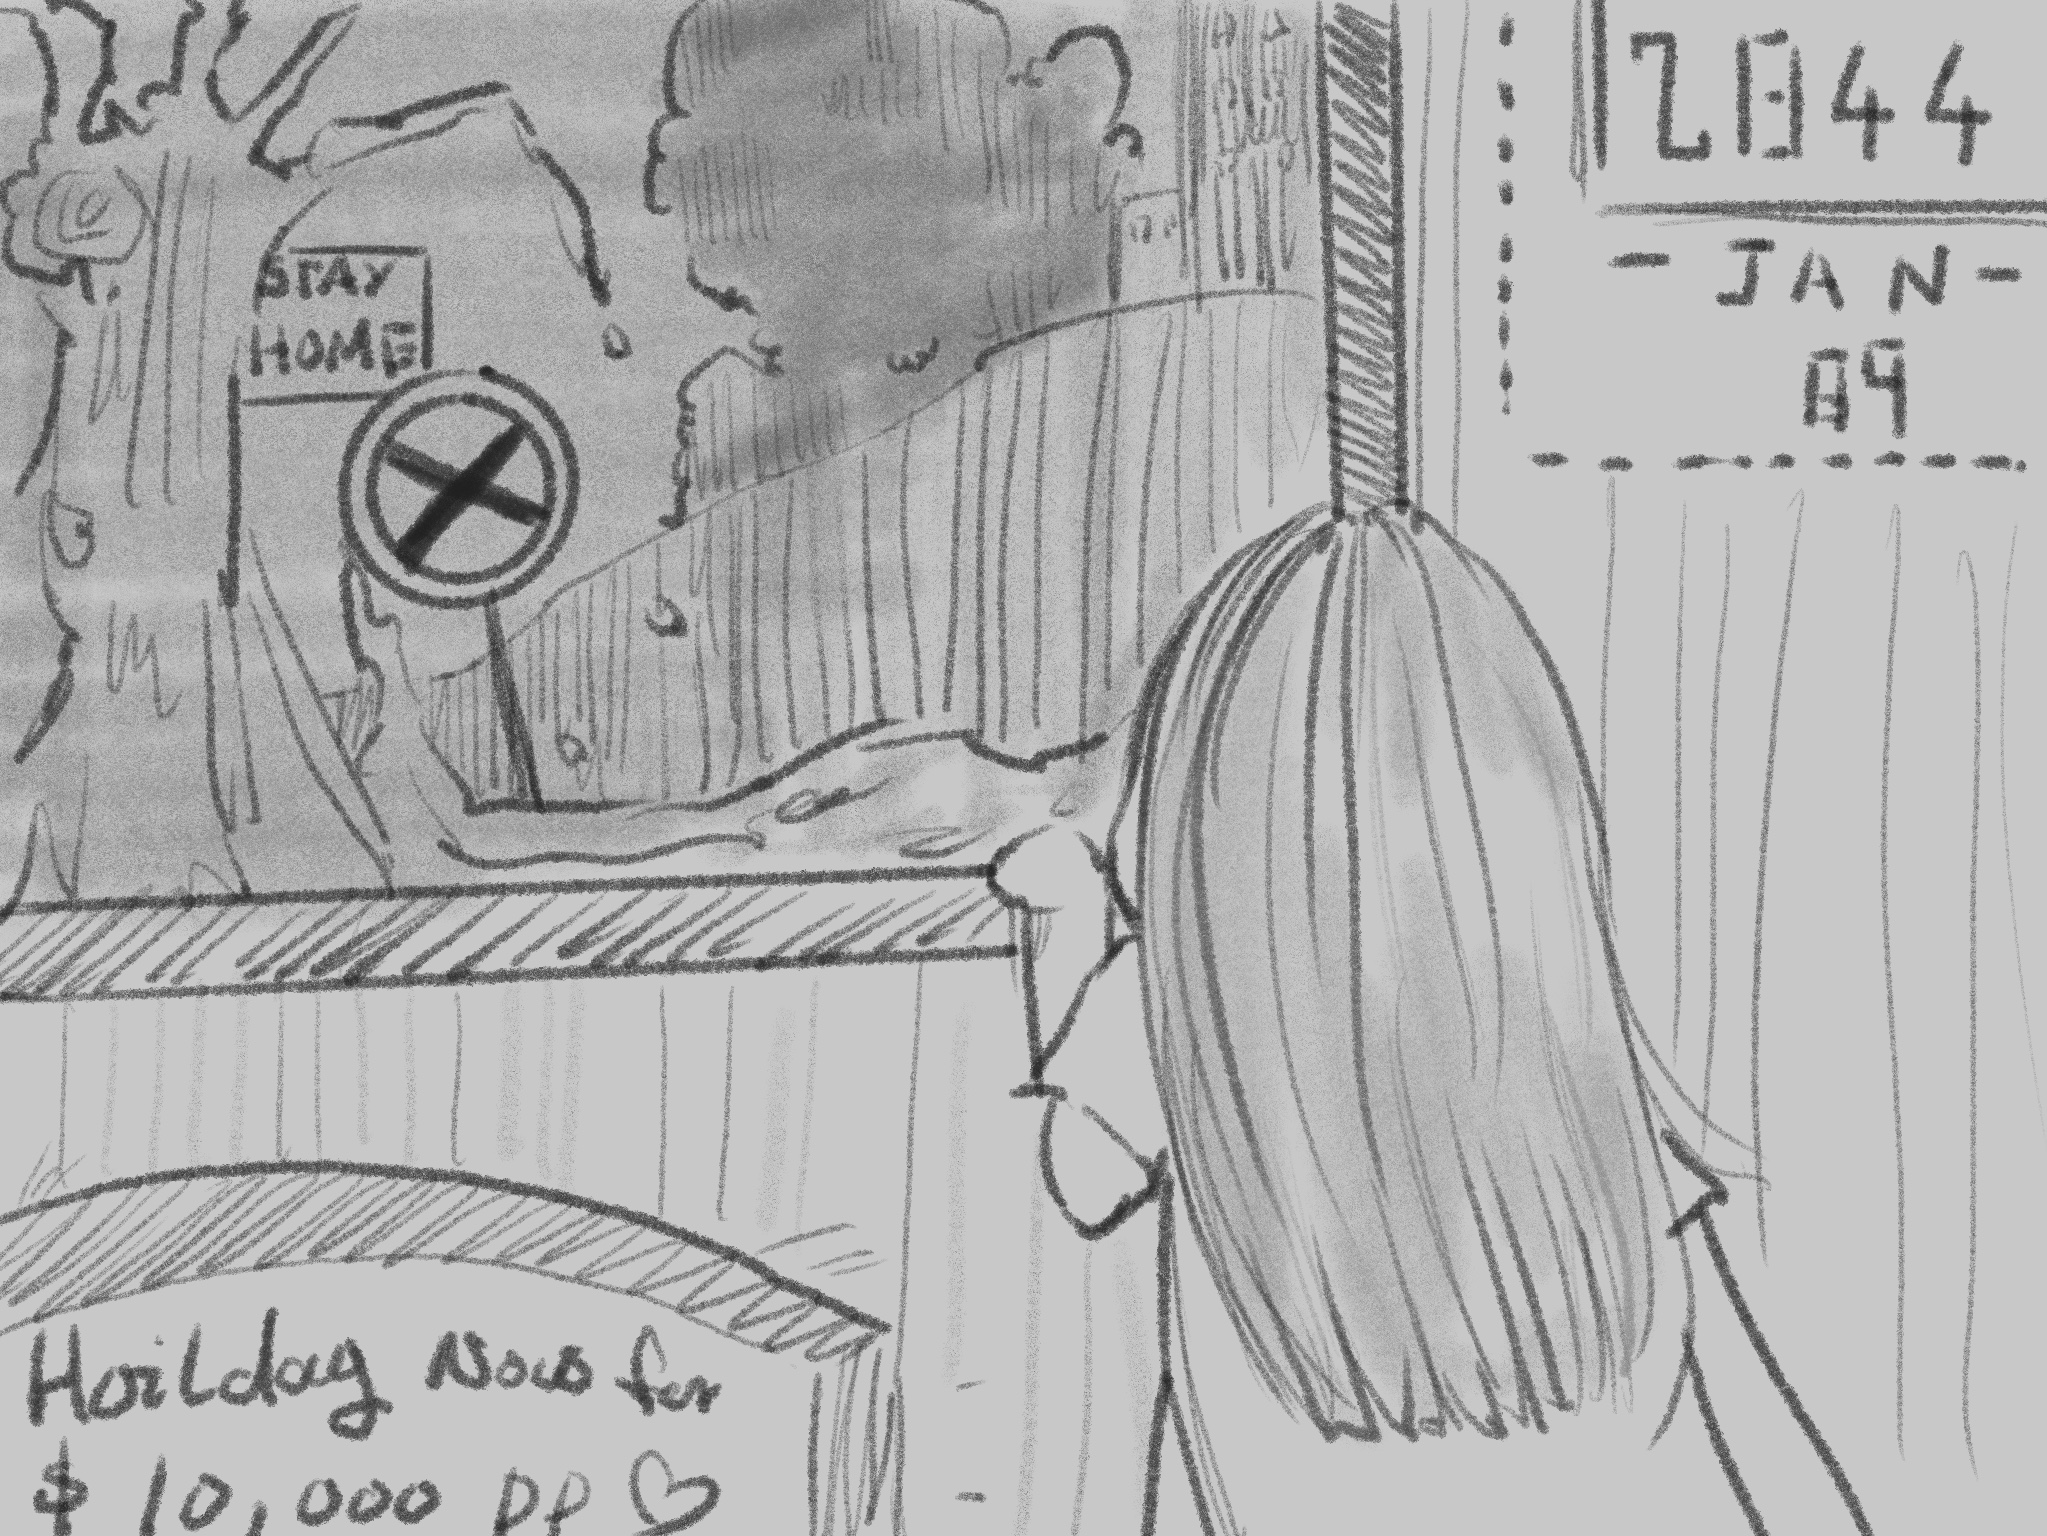 STAY
HOME
2044
- JAN -
09
Hoilday Nows for
$ 10,000 pp ♡